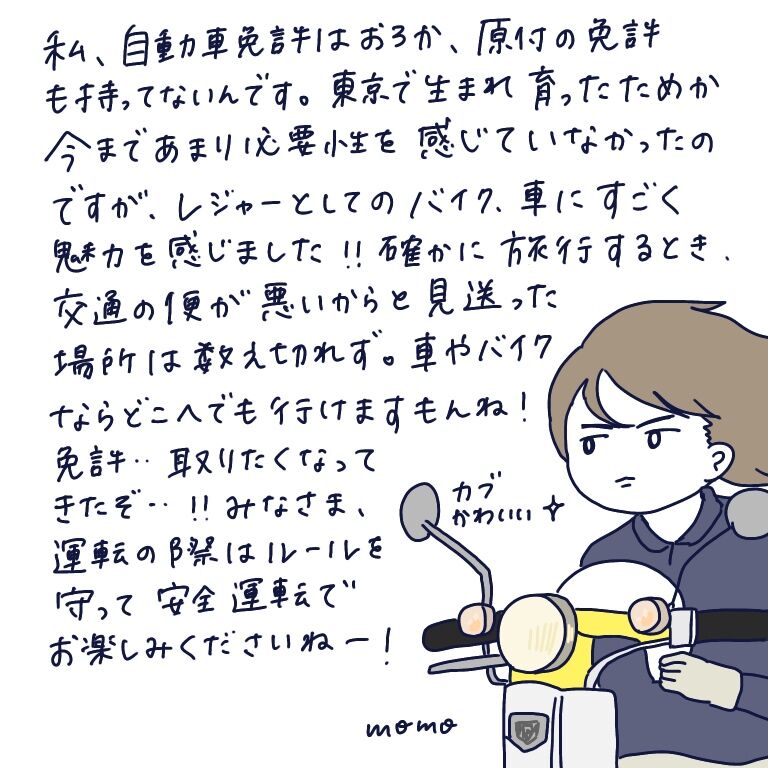 私、自動車免許はおろか、原付の免許
も持ってないんです。東京で生まれ育ったためか
今まであまり必要性を感じていなかったの
ですが、レジャーとしてのバイク、車にすごく
魅力を感じました!!確かに旅行するとき、
交通の便が悪いからと見送った
場所は数え切れず。車やバイク
ならどこへでも行けますもんね!
免許‥取りたくなって
きたぞ‥!!みなさま、
運転の際はルールを
守って安全運転で
お楽しみくださいねー!
カブ
かわいい
momo